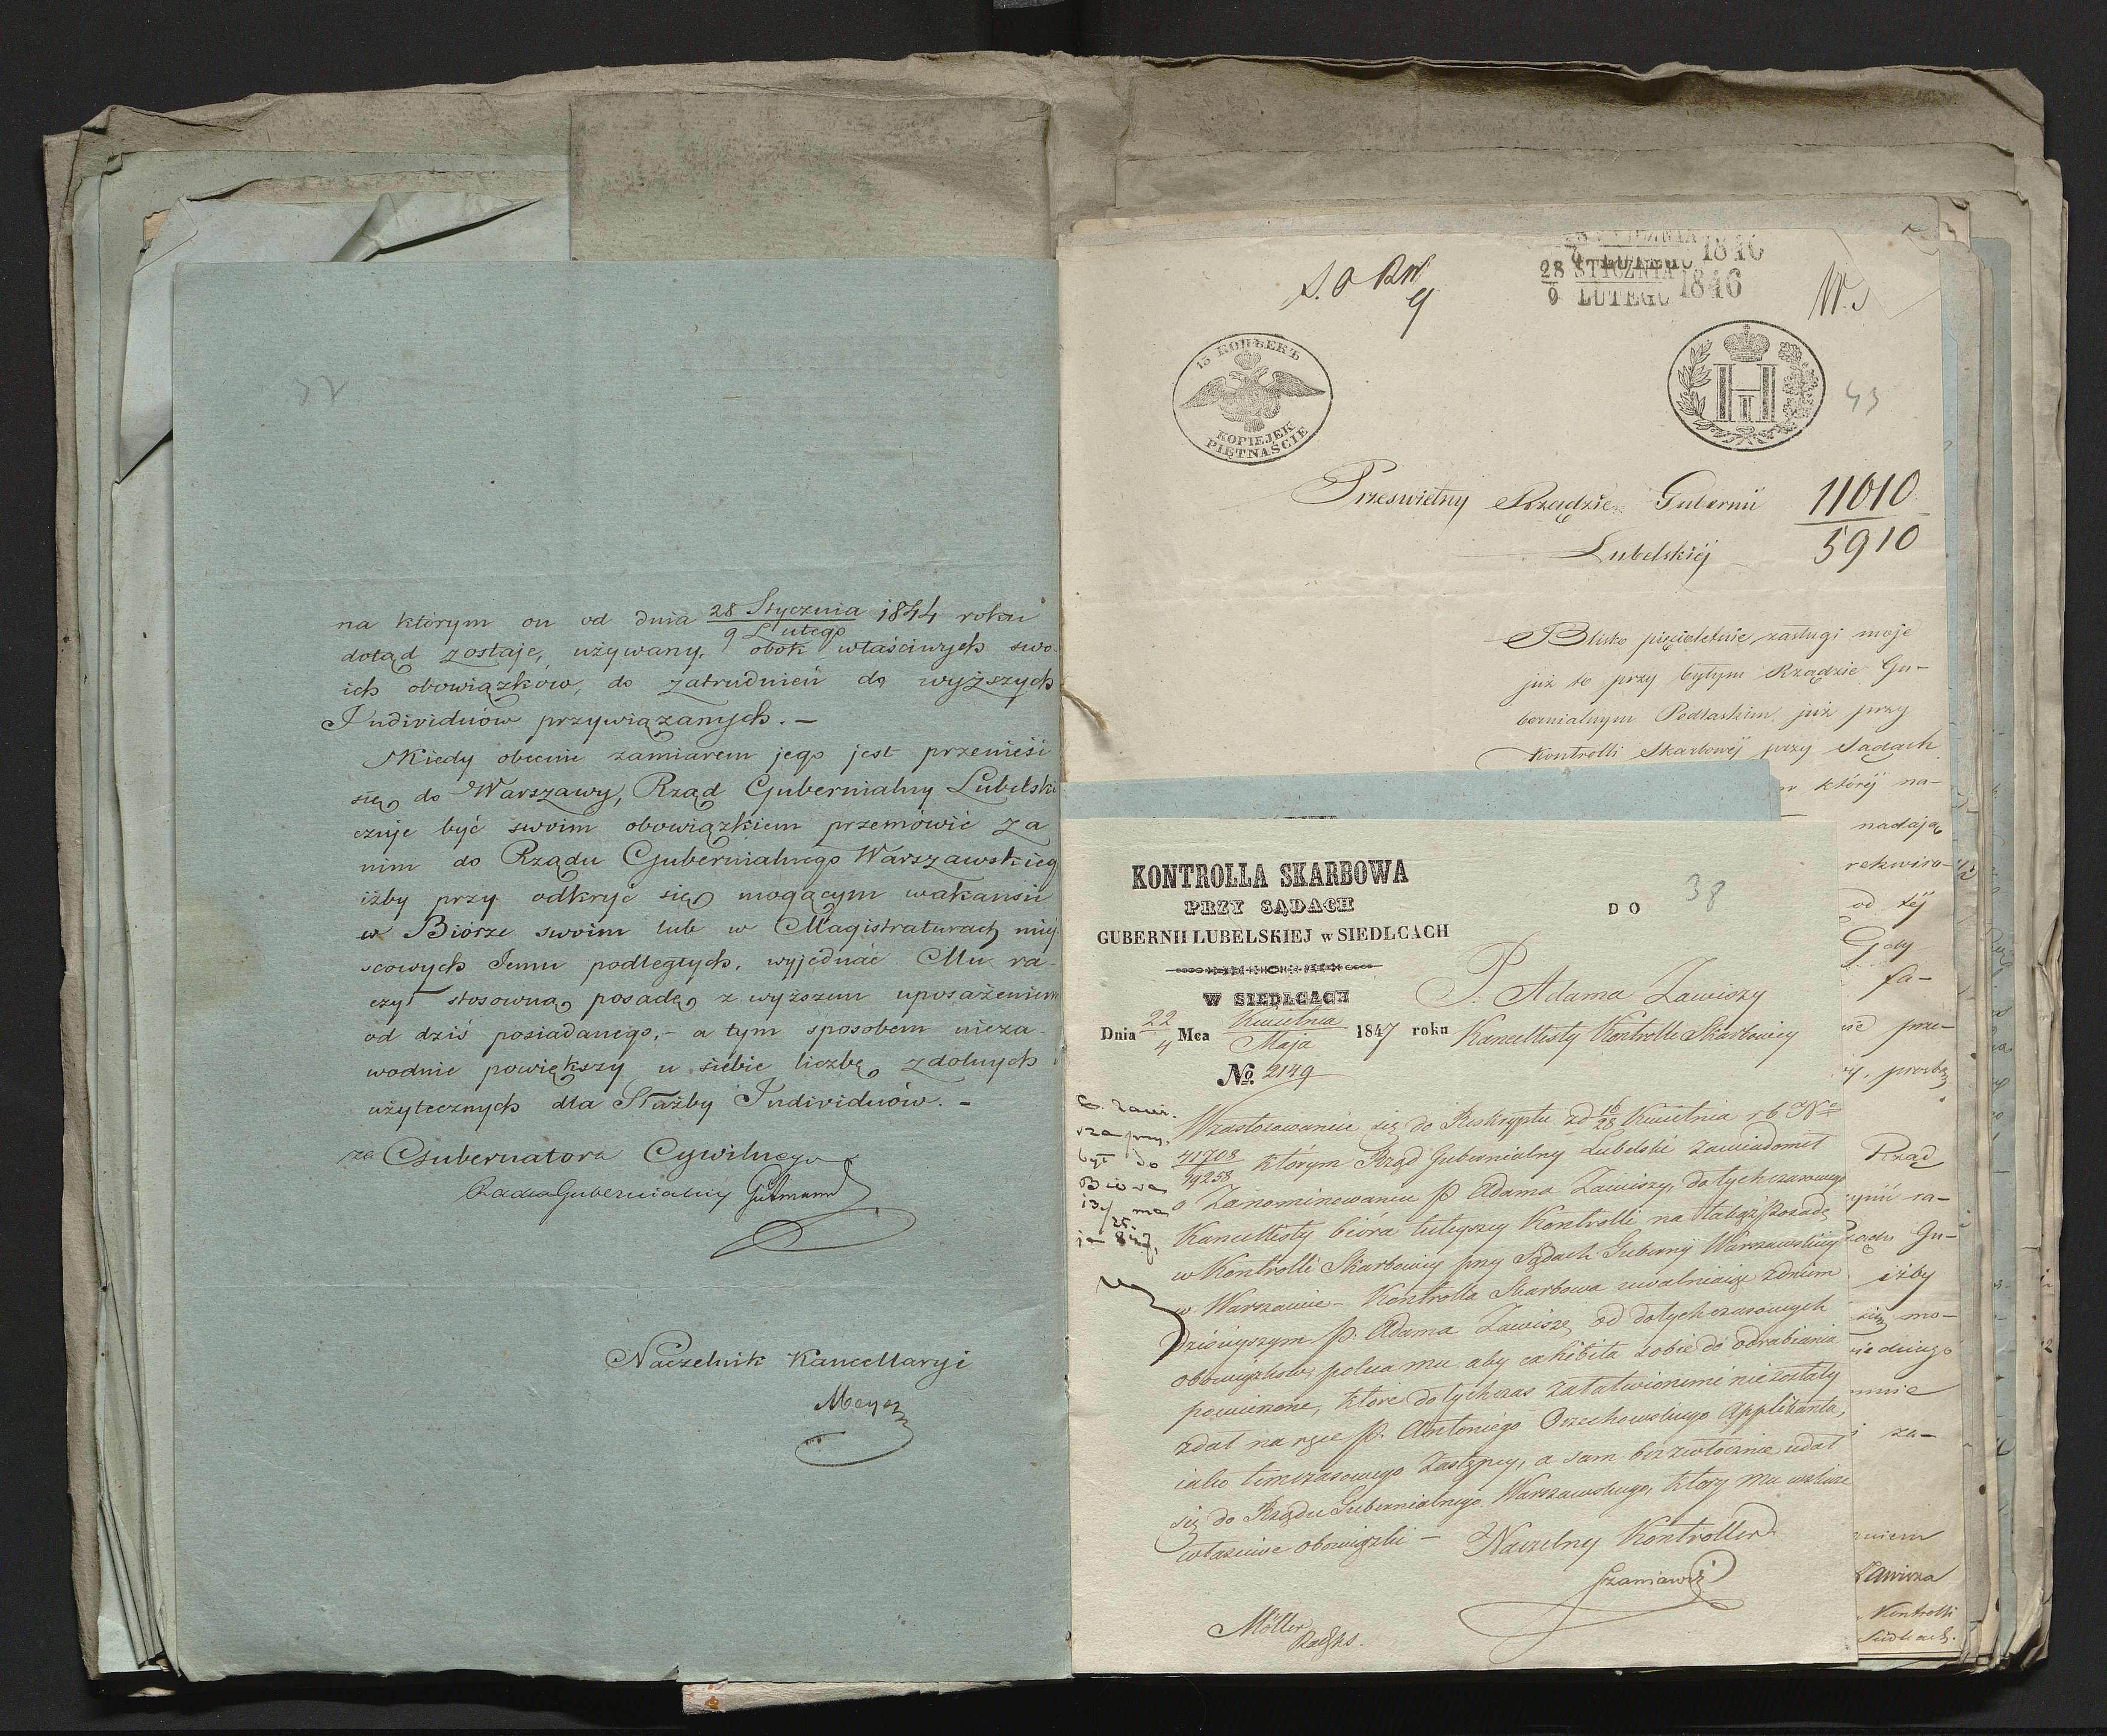 37
na którym on od dnia 28 Stycznia / 9 Lutego 1844 roku
dotąd zostaje, używany, obok właściwych swo-
ich obowiązków, do zatrudnień do wyższych
Individuów przywiązanych. —
Kiedy obecnie zamiarem jego jest przenieść
się do Warszawy, Rząd Gubernialny Lubelski
czuje być swoim obowiązkiem przemówić za
nim do Rządu Gubernialnego Warszawskieg
iżby przy odkryć się mogącym wakansie
w Biórze swoim lub w Magistraturach miej
scowych Jemu podległych, wyjednać Mu ra-
czył stosowną posadę z wyższem uposażeniem
od dziś posiadanego, — a tym sposobem nieza-
wodnie powiększy u siebie liczbę zdolnych i
użytecznych dla Służby Individuów. —
za Gubernatora Cywilnego
Radca Gubernialny Gutmann
Naczelnik Kancellaryi
Meyer
4 LUTEGO 1846
28 STYCZNIA 1846
9 LUTEGO
15 КОПѢЕКЪ
KOPIEJEK
PIĘTNAŚCIE
H I
43
Prześwietny Rządzie Gubernii
Lubelskiéj
11010
5910
Blisko pięcioletnie zasługi moje
już to przy byłym Rządzie Gu-
bernialnym Podlaskim już przy
Kontrolli Skarbowéj przy Sądach
któréj na-
nadają
rekwizo-
od téj
fa-
prze-
prośbą
Rząd
ra-
Gu-
iżby
mo-
za-
Zawisza
Kontrolli
KONTROLLA SKARBOWA
PRZY SĄDACH
GUBERNII LUBELSKIEJ w SIEDLCACH
W SIEDLCACH
Dnia 22/4 Mca Kwietnia/Maja 1847 roku
No. 2149
DO
38
P. Adama Zawiszy
Kancellisty Kontrolli Skarbowéy
P. Zawi-
sza przy-
był do
Biura
13/25 ma
ja 847.
W zastosowaniu się do Reskryptu z d 16/28 Kwietnia r b No
41708/49258 którym Rząd Gubernialny Lubelski zawiadomił
o Zanominowaniu P. Adama Zawiszy, dotychczasowego
Kancellisty bióra tuteyszey Kontrolli na takąż Posadę
w Kontrolli Skarbowey przy Sądach Gubernij Warszawskiey
w Warszawie — Kontrolla Skarbowa uwalniaiąc z dniem
dzisieyszym P. Adama Zawiszę od dotychczasowych
obowiązków, poleca mu aby exhibita sobie do odrabiania
powierzone, które dotychczas załatwionemi nie zostały
zdał na ręce P. Antoniego Orzechowskiego Applikanta,
iako tymczasowego Zastępcy, a sam bezzwłocznie udał
się do Rządu Gubernialnego Warszawskiego, który mu wskaże
właściwe obowiązki — Naczelny Kontroller
Szaniawski
Möller